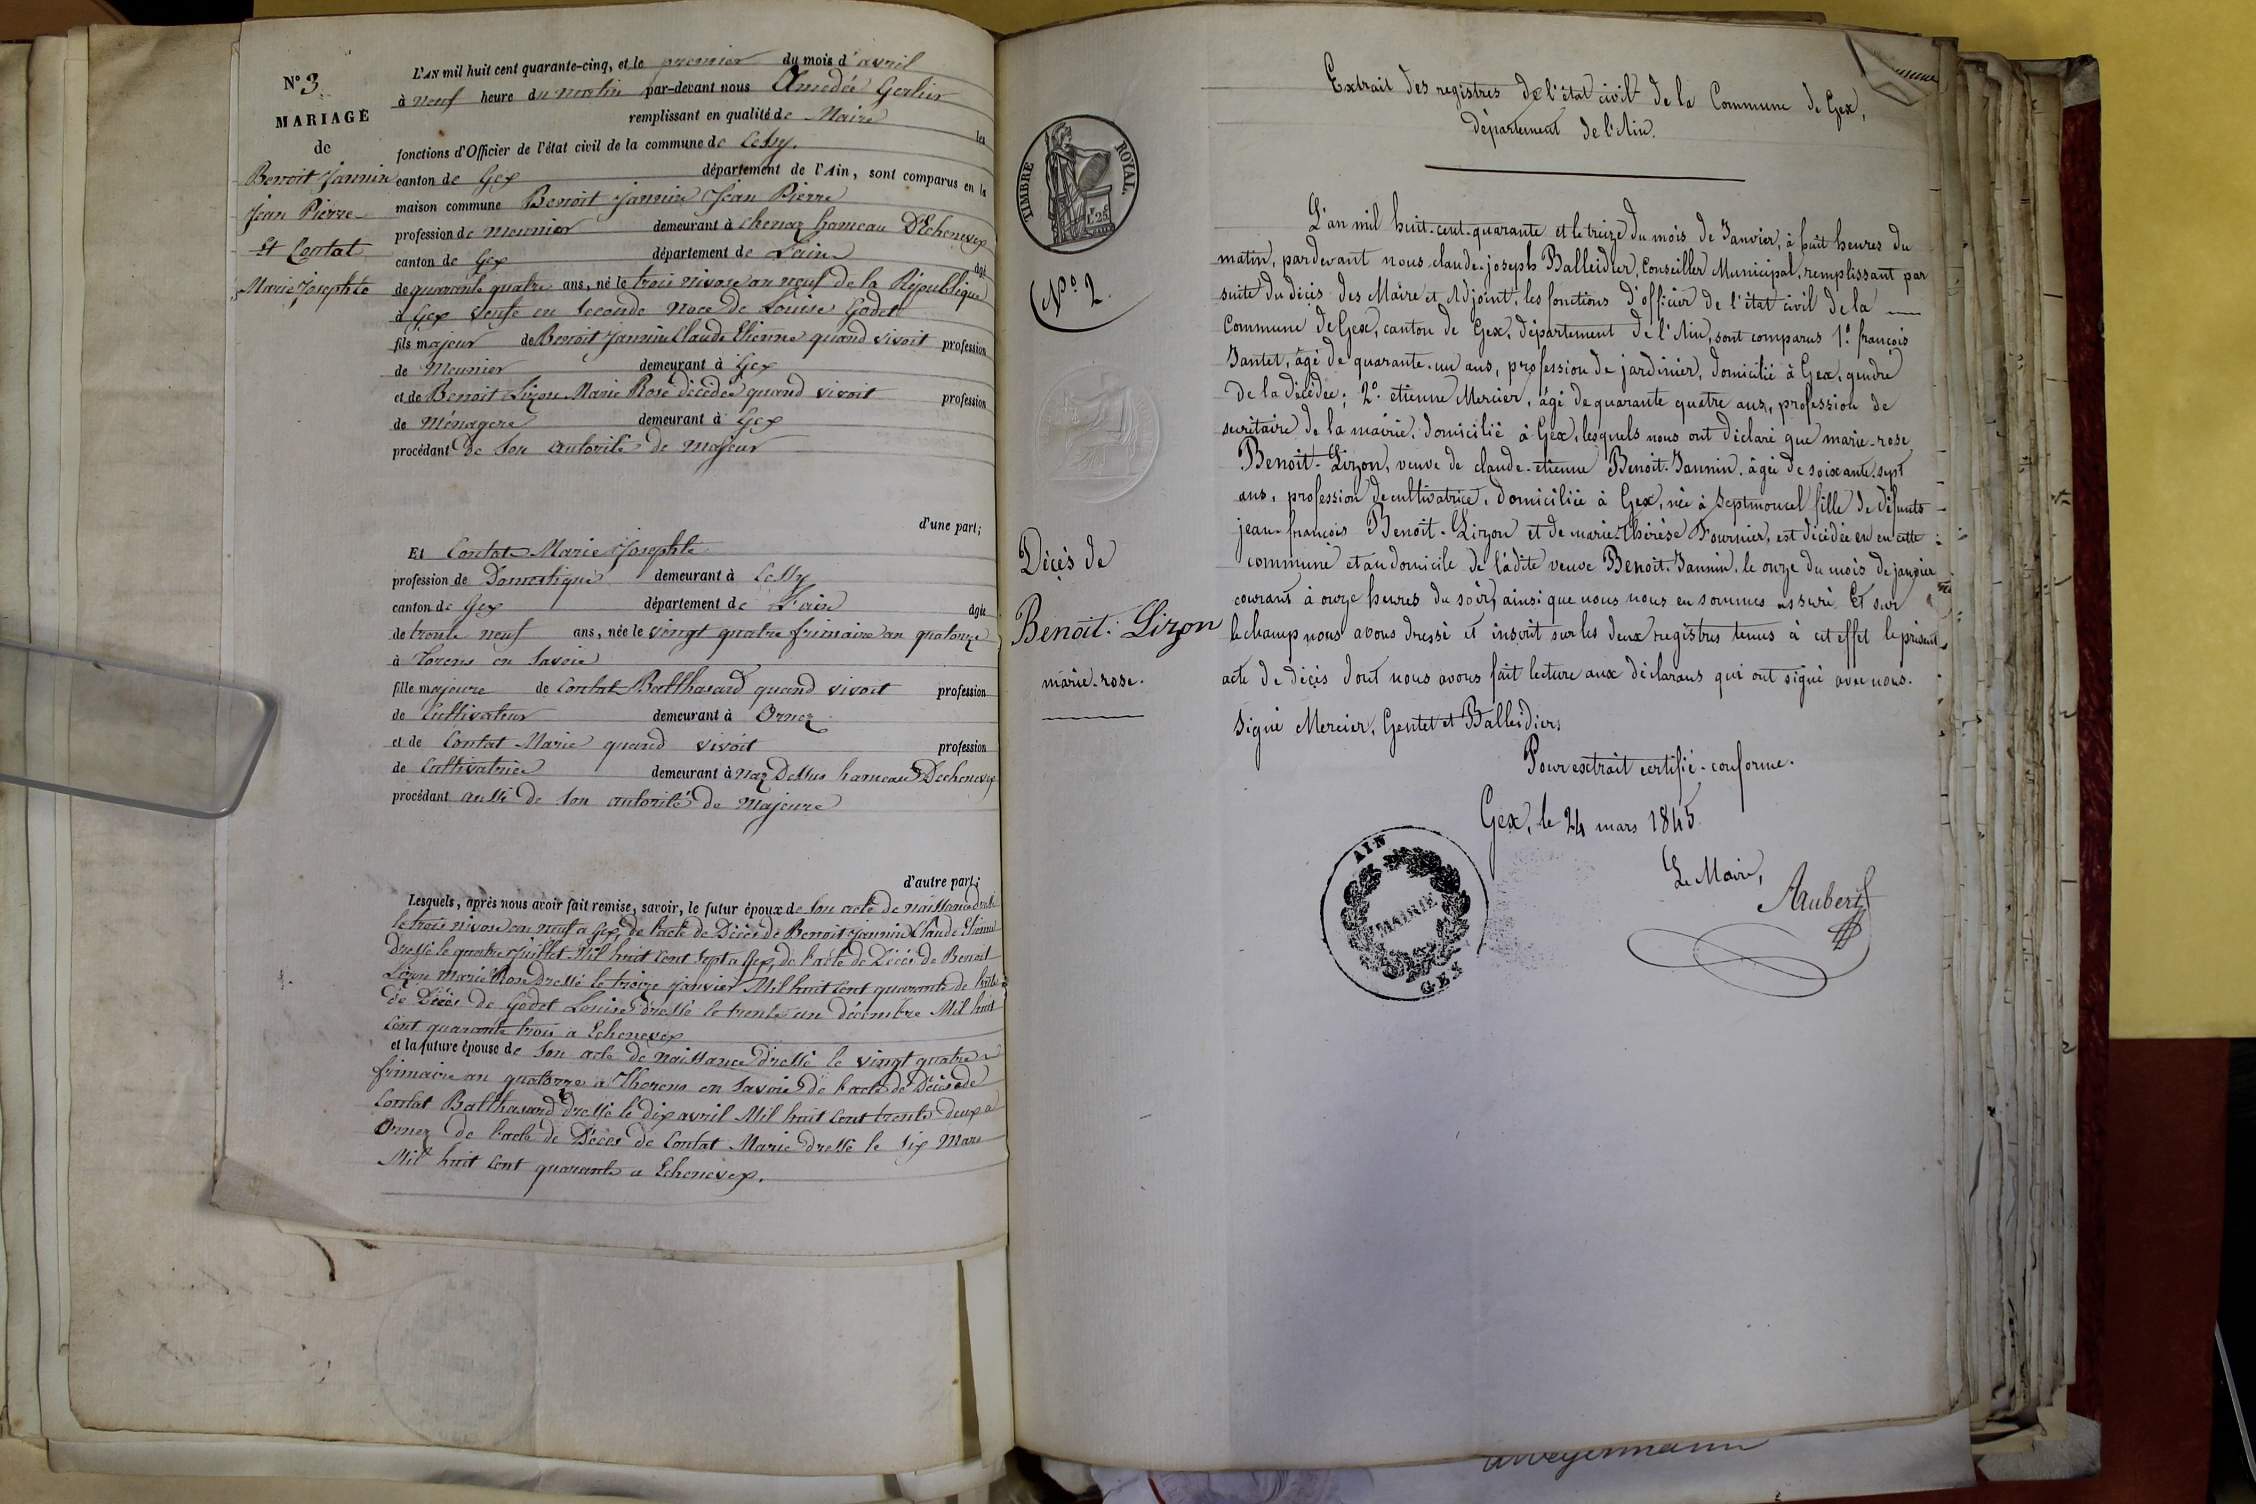 N.° 3
MARIAGE
de
Benoit Jannin
Jean Pierre
Et Contat
Marie Josephte
L'AN mil huit cent quarante-cinq, et le premier du mois d'avril
à neuf heure du matin par-devant nous Amedée Gerlier
remplissant en qualité de Maire les
fonctions d'Officier de l'état civil de la commune de Cessy.
canton de Gex département de l'Ain, sont comparus en la
maison commune Benoit Jannin Jean Pierre
profession de meunier demeurant à chenaz hameau D'Echenevex
canton de Gex département de L'ain âgé
de quarante quatre ans, né le trois nivose an neuf de la République
à Gex veuf en seconde noce de Louise Godet
fils majeur de Benoit Jannin Claude Etienne quand vivoit profession
de Meunier demeurant à Gex
et de Benoit Lizon Marie Rose décédée quand vivoit profession
de Ménagere demeurant à Gex
procédant de son autorité de majeur
d'une part;
Et Contat Marie Josephte
profession de Domestique demeurant à Cessy
canton de Gex département de L'ain âgée
de trente neuf ans, née le vingt quatre frimaire an quatorze
à Thorens en Savoie
fille majeure de Contat Balthasard quand vivoit profession
de Cultivateur demeurant à Ornex
et de Contat Marie quand vivoit profession
de Cultivatrice demeurant à naz Dessus hameau Dechenevex
procédant aussi de son autorité de majeure
d'autre part;
Lesquels, après nous avoir fait remise, savoir, le futur époux de son acte de naissance dressé
le trois nivose an neuf a Gex, de l'acte de Décès de Benoit Jannin Claude Etienne
dressé le quatre Juillet Mil huit cent sept a Gex, de l'acte de Décès de Benoit
Lizon Marie Rose Dressé le treize janvier Mil huit cent quarante de l'acte
de Décès de Godet Louise dressé le trente un décembre Mil huit
cent quarante trois a Echenevex
et la future épouse de son acte de naissance dressé le vingt quatre
frimaire an quatorze a Thorens en Savoie de l'acte de Décès de
Contat Balthasard dressé le dix avril Mil huit cent trente deux a
Ornex de l'acte de Décès de Contat Marie dressé le six Mars
Mil huit cent quarante a Echenevex.
Extrait des registres de l'état civil de la Commune de Gex,
département de l'Ain.
TIMBRE ROYAL
1F 25c
N.° 2.
Décès de
Benoit-Lizon
marie-rose.
L'an mil huit-cent-quarante et le treize du mois de Janvier, à huit heures du
matin, pardevant nous claude-joseph Balleidier, Conseiller Municipal, remplissant par
suite du décès des Maire et Adjoint, les fonctions d'officier de l'état civil de la
Commune de Gex, canton de Gex, département de l'Ain, sont comparus 1.° françois
Jantet, âgé de quarante-un ans, profession de jardinier, domicilié à Gex, gendre
de la décédée; 2.° etienne Mercier, âgé de quarante quatre ans, profession de
secrétaire de la mairie, domicilié à Gex, lesquels nous ont déclaré que marie-rose
Benoit-Lizon, veuve de claude-etienne Benoit-Jannin, âgée de soixante-sept
ans, profession de cultivatrice, domiciliée à Gex, née à Septmoncel fille de défunts
jean-françois Benoit-Lizon et de marie-thérèse Fournier, est décédée en en cette
commune et au domicile de ladite veuve Benoit-Jannin, le onze du mois de janvier
courant à onze heures du soir, ainsi que nous nous en sommes assuré. Et sur
le champ nous avons dressé et inscrit sur les deux registres tenus à cet effet le présent
acte de décès dont nous avons fait lecture aux déclarans qui ont signé avec nous.
Signé Mercier, Gentet et Balleidier.
Pour extrait certifié-conforme.
Gex, le 24 mars 1845
Le Maire,
Aubert
AIN
MAIRIE
GEX